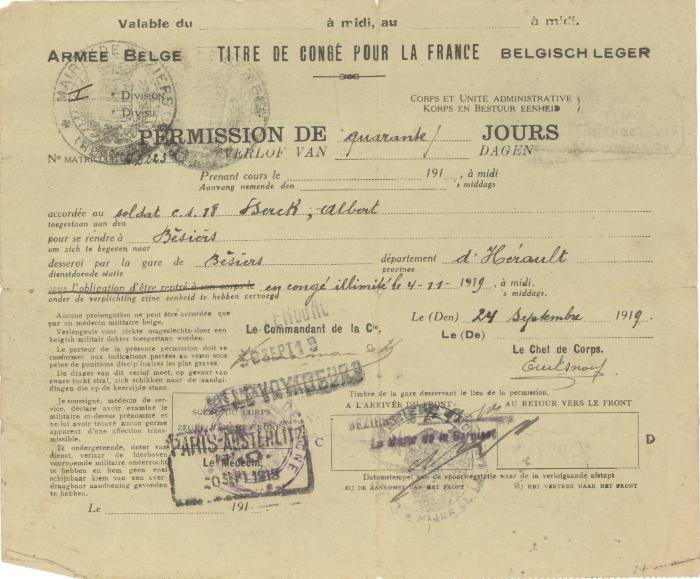 Valable du à midi, au à midi.
ARMÉE BELGE TITRE DE CONGÉ POUR LA FRANCE BELGISCH LEGER
DIVISION
DIVISIE
CORPS ET UNITÉ ADMINISTRATIVE
KORPS EN BESTUUR EENHEID
PERMISSION DE quarante JOURS
VERLOF VAN DAGEN
No MATRICULE
Prenant cours le 191 , à midi
Aanvang nemende den 's middags
accordée au soldat c.s. 18 Berck, Albert
toegestaan aan den
pour se rendre à Bèsièrs
om zich te begeven naar
desservi par la gare de Bèsièrs département d'Hérault
dienstdoende statie provincie
sous l'obligation d'être rentré à son corps le en congé illimité le 4-11-1919 , à midi.
onder de verplichting zijne eenheid te hebben vervoegd 's middags.
Aucune prolongation ne peut être accordée que
par un médecin militaire belge.
Verlengeuis voor ziekte mageslechts door een
belgisch militair doktor toegestaan worden.
Le porteur de la présente permission doit se
conformer aux indications portées au verso sous
peine de punitions disciplinaires les plus graves.
De drager van dit verlof moet, op gevaar van
zware tucht straf, zich schikken naar de aandui-
digen die op de keerzijde staan.
Je soussigné, médecin de ser-
vice, déclare avoir examiné le
militaire ci-dessus prénommé et
se lui avoir trouvé aucun germe
apparent d'une affection trans-
missible.
Te ondergeteende, deter van
dienst, verlaar de hierboven
voornoemde militaire onderzocht
te hebben en hem geen
schijnbaar kiem van eene ver-
draagbaar aandoening gevonden
te hebben.
Le 191
Le Commandant de la Cie,
30 SEPT 19
SCEAU DU CORPS
ZEGEL VAN HET KORPS
PARIS-AUSTERLITZ
Le Médecin,
SEPT 1919
Le (Den) 24 Septembre 1919.
Le (De)
Le Chef de Corps.
Timbre de la gare desservant le lieu de la permission.
A L'ARRIVÉE DU FRONT AU RETOUR VERS LE FRONT
C
D
Le Major de la Garnison
Datumstempel van de spoorwegstatie waar de in verlofgaande afstapt
BIJ DE AANKOMST VAN HET FRONT BIJ HET VERTREK NAAR HET FRONT